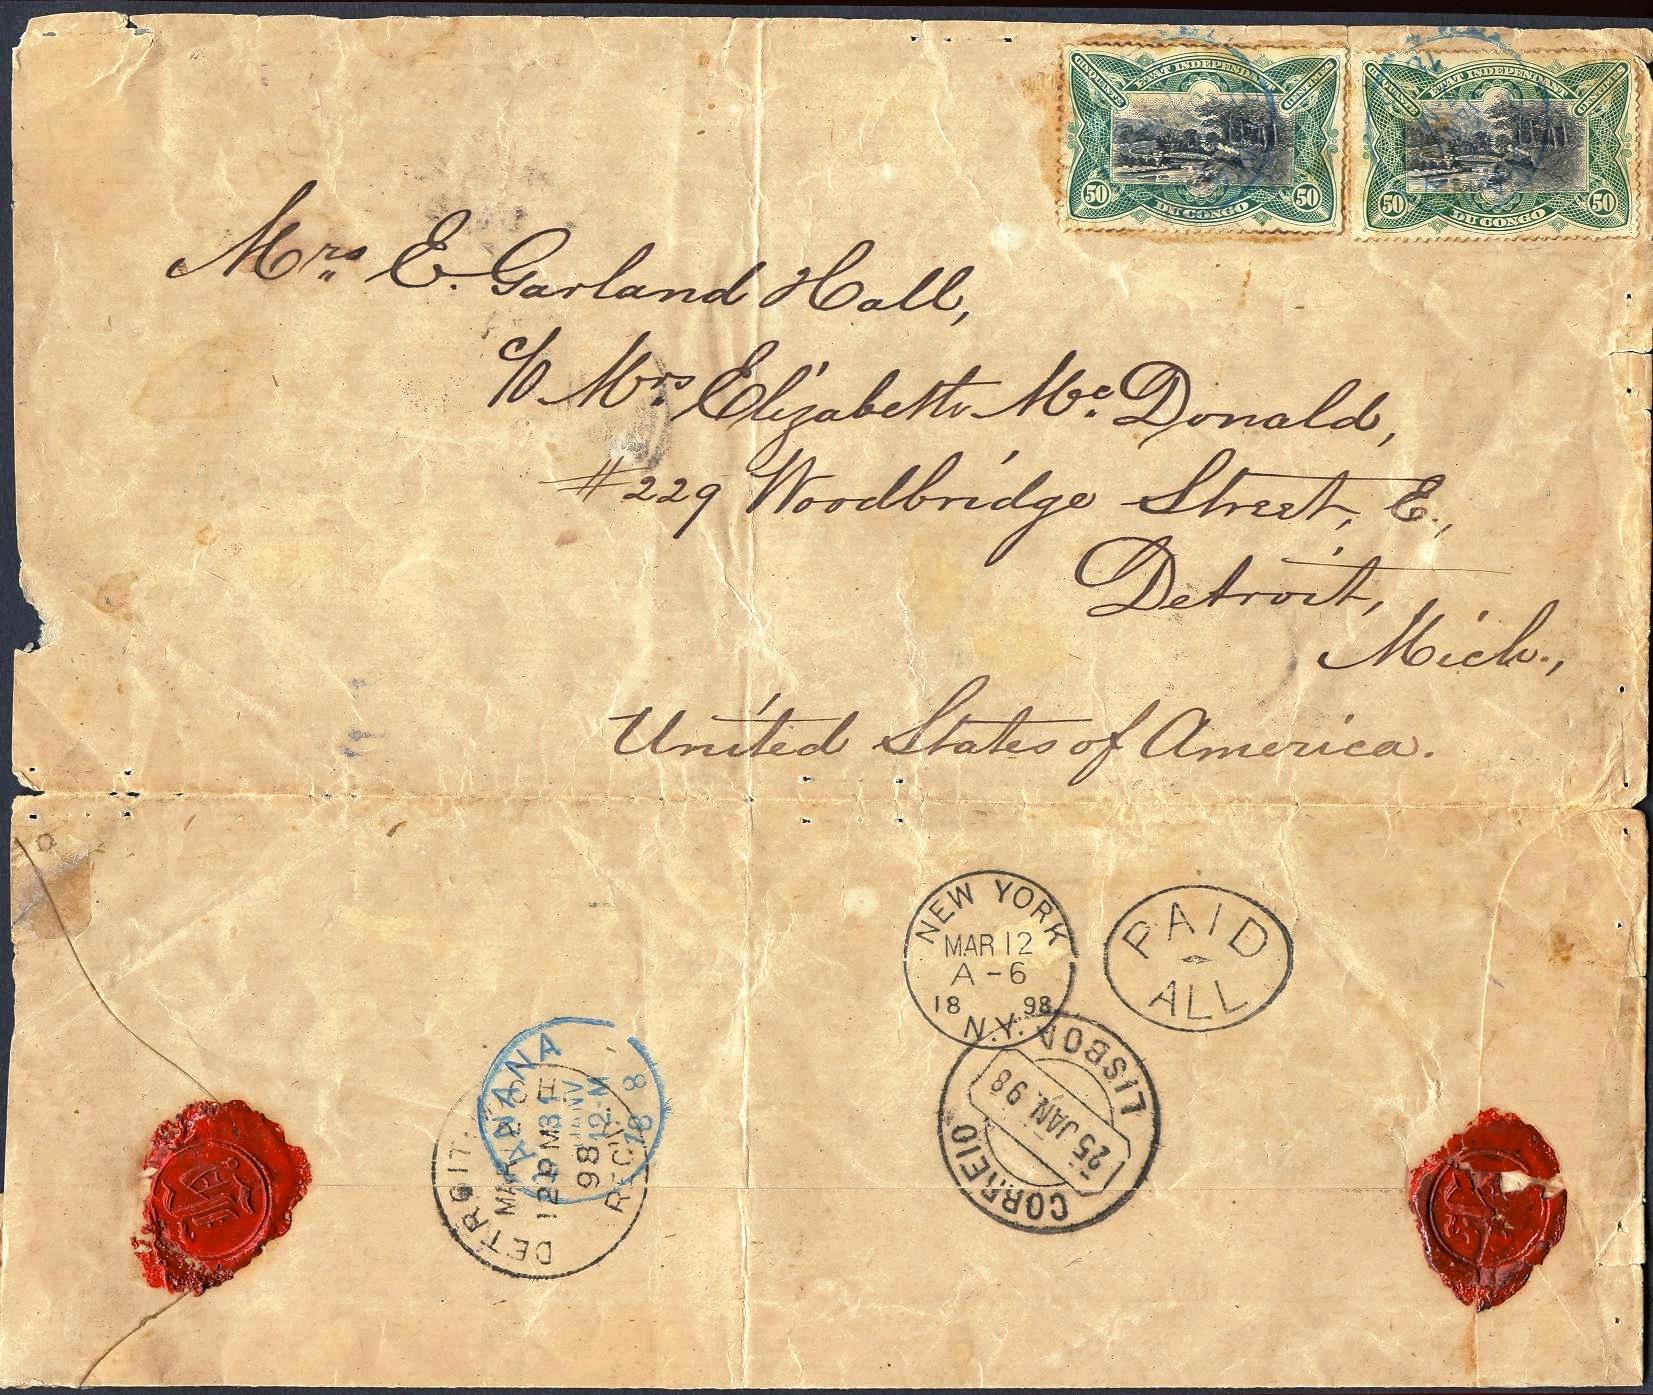 CINQUANTE ETAT INDEPENDANT CENTIMES
50 DU CONGO 50
CINQUANTE ETAT INDEPENDANT CENTIMES
50 DU CONGO 50
Mrs E. Garland Hall,
c/o Mrs Elizabeth Mc Donald,
#229 Woodbridge Street, E.,
Detroit,
Mich.,
United States of America.
NEW YORK
MAR 12
A-6
18 98
N.Y.
PAID
ALL
CORREIO
25 JAN. 98
LISBOA
BANANA
JANV
DETROIT
MAR
12 M
98
REC'D